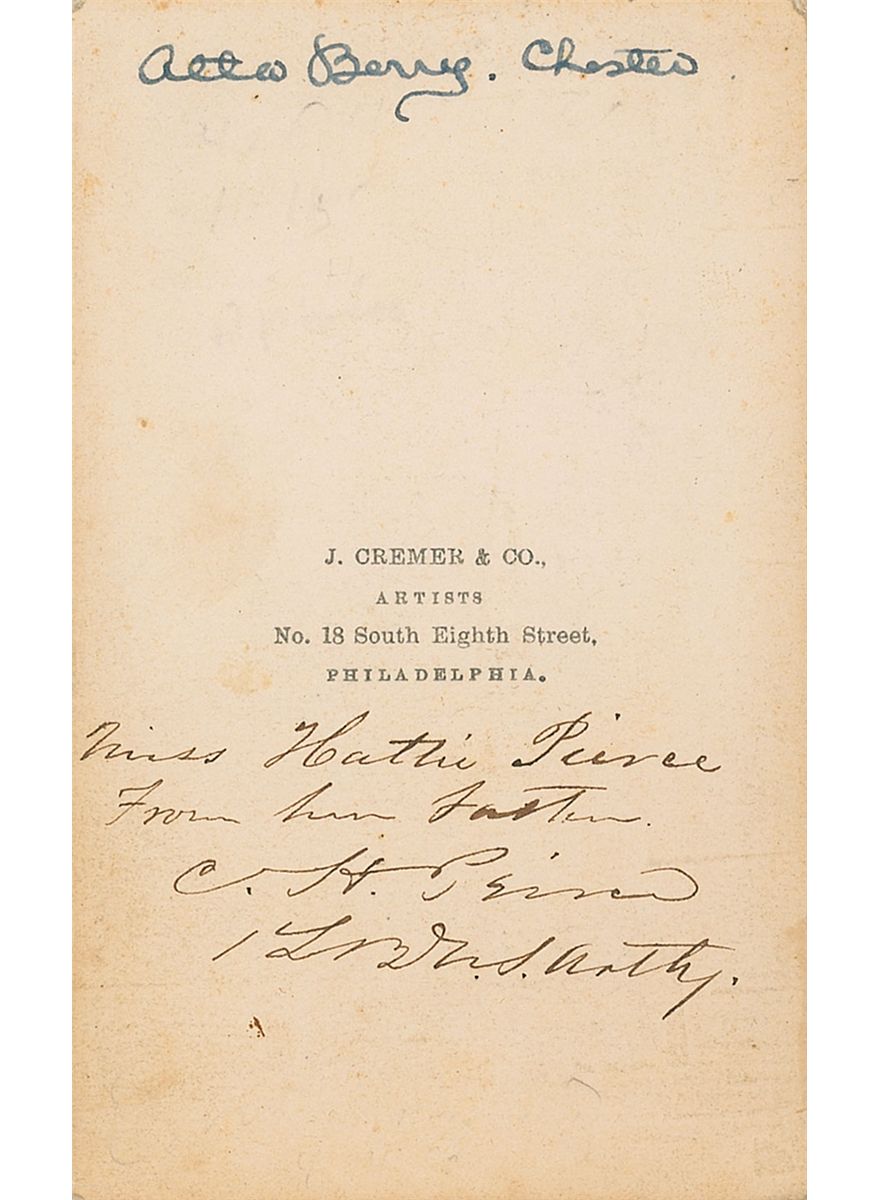 Atta Berry. Chester
J. CREMER & CO.,
ARTISTS
No. 18 South Eighth Street,
PHILADELPHIA.
Miss Hattie Pierce
From her
C. H. Peirce
1 Lt U.S. Arty.